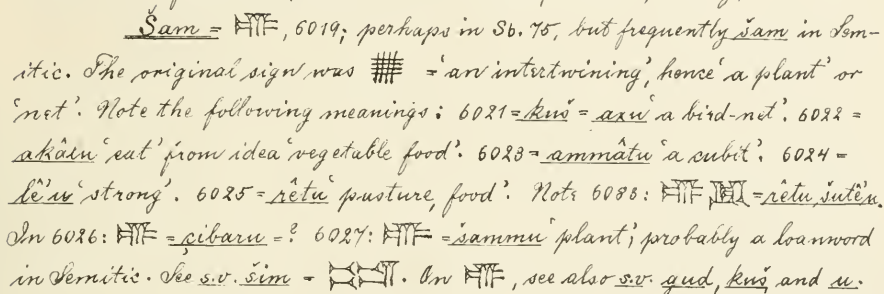 Šam = 𒌑, 6019; perhaps in Sb. 75, but frequently šam in Sem-
itic. The original sign was = 'an intertwining', hence 'a plant' or
'net'. Note the following meanings: 6021 = kuš = azu 'a bird-net'. 6022 =
akâlu 'eat' from idea 'vegetable food'. 6023 = ammâtu 'a cubit'. 6024 =
lê'u 'strong'. 6025 = rêtu 'pasture, food'. Note 6088: 𒌑 = rêtu, šutê'u.
In 6026: 𒌑 = çibaru = ? 6027: 𒌑 = šammu 'plant'; probably a loanword
in Semitic. See s.v. šim = . On 𒌑, see also s.v. gud, kuš, and u.